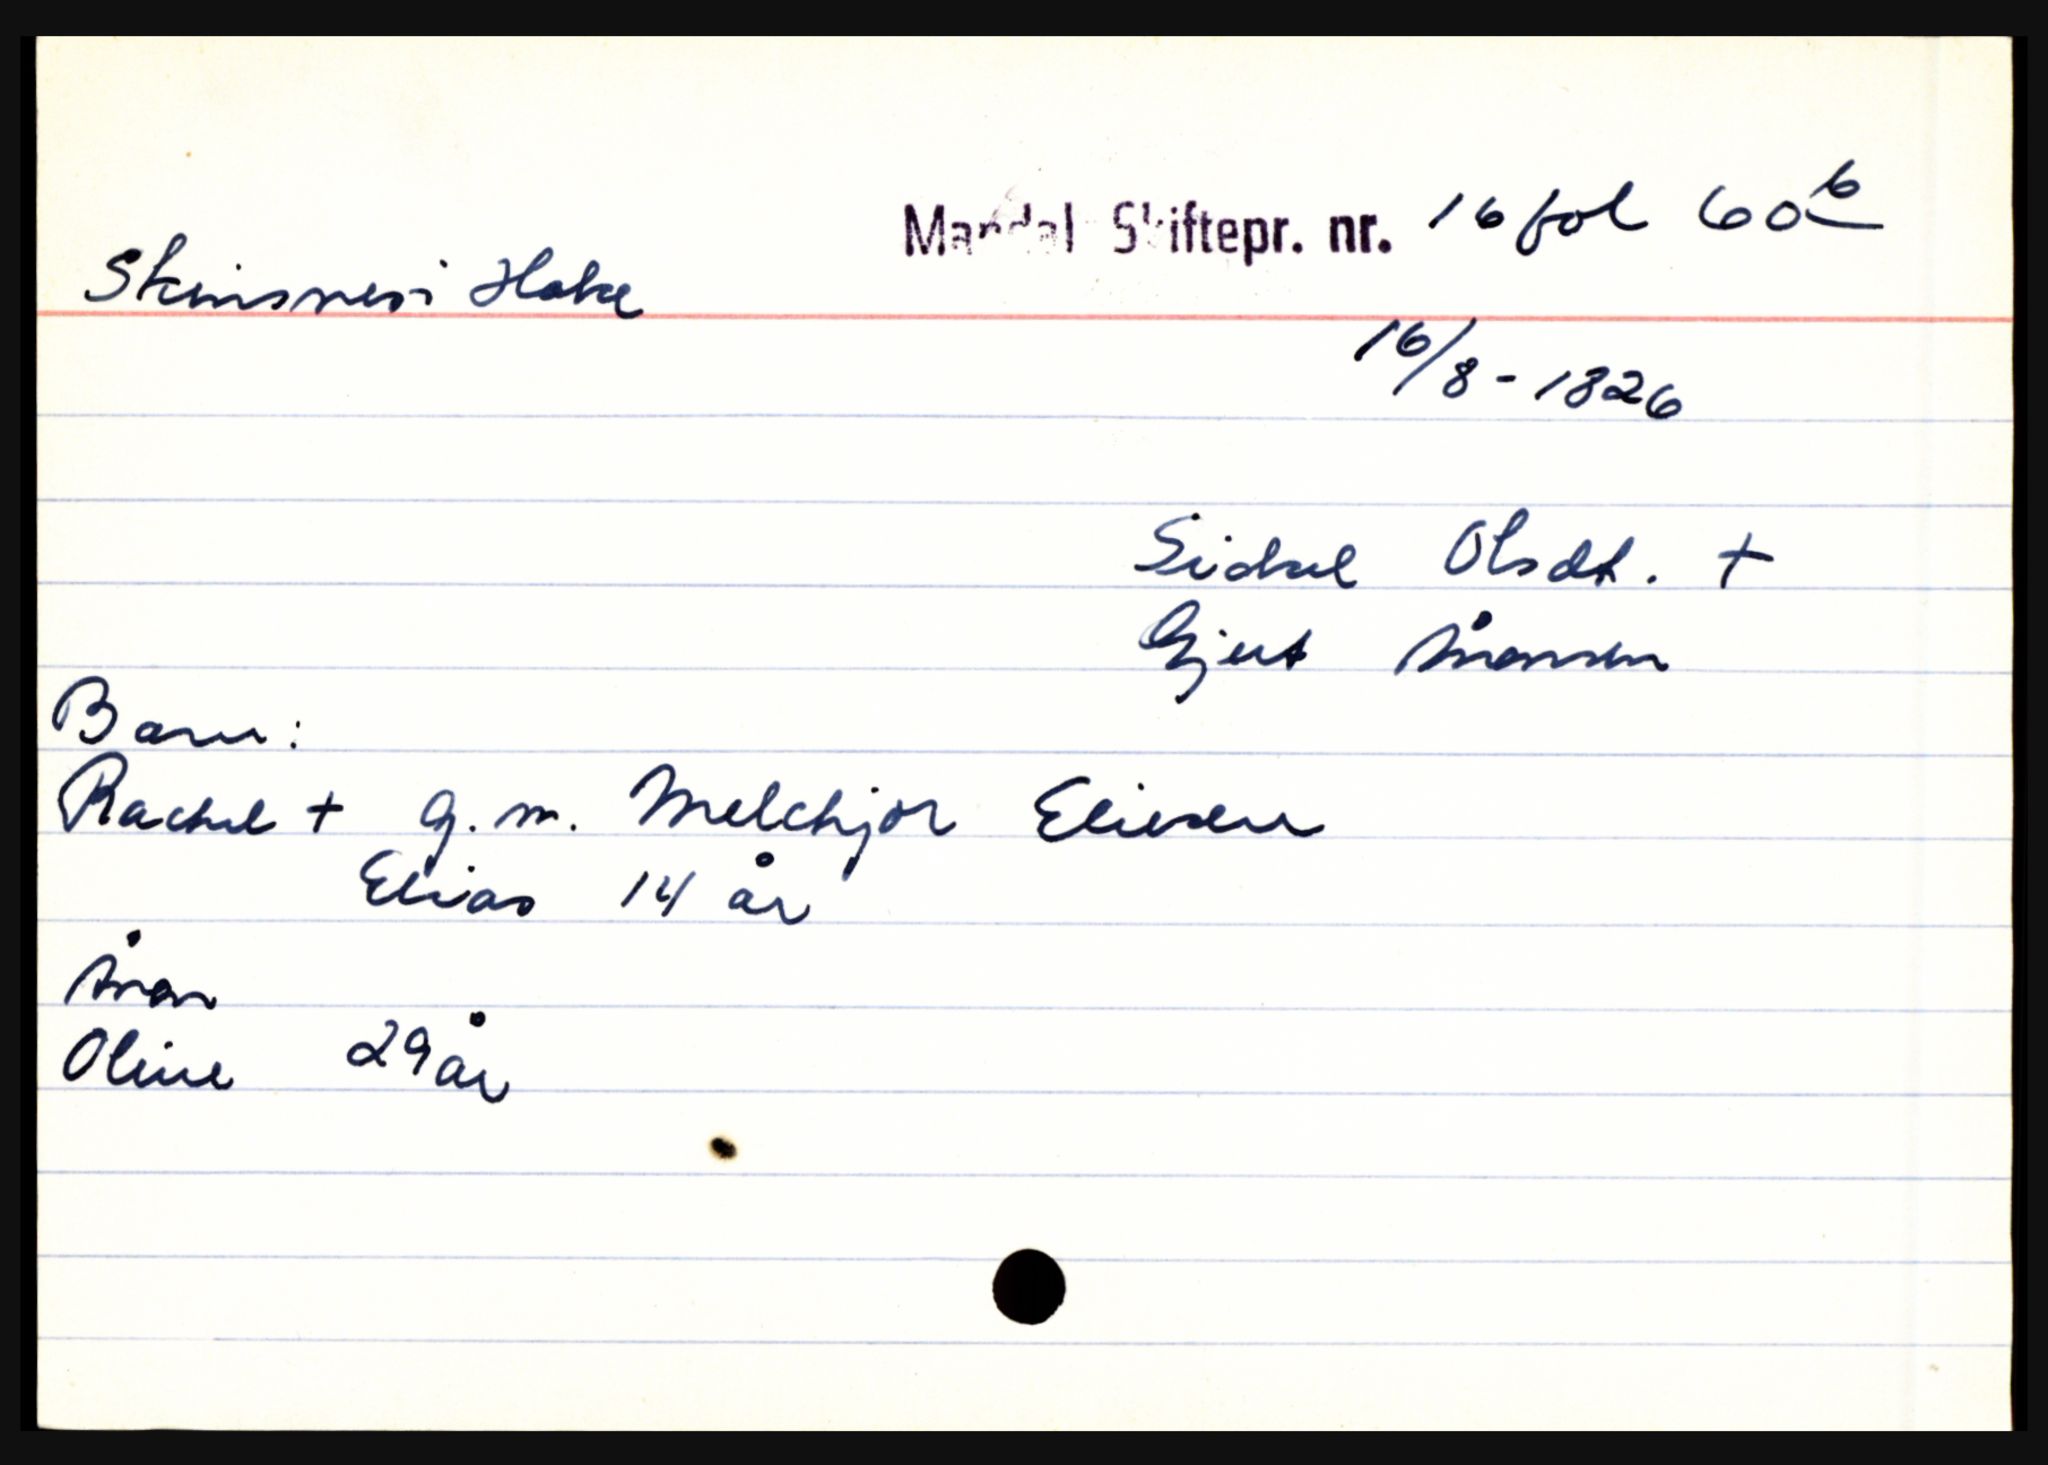 Mandal Skiftepr. nr. 16 fol 60b
Skinsnes i Halse
16/8 - 1826
Sidsel Olsdt. +
Gjert Ånonsen
Barn:
Rachel + g. m. Melchjor Eliesen
Elias 14 år
Ånon
Oline 29 år